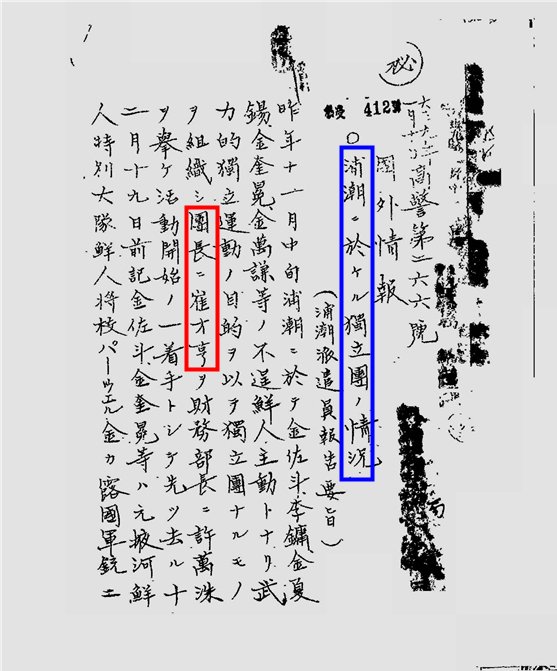 秘
412
高警第二六六號
國外情報
○浦潮ニ於ケル獨立團ノ情況
(浦潮派遣員報告要旨)
昨年十一月中旬浦潮ニ於テ金佐斗李鏞金夏
錫金奎冕金萬謙等ノ不逞鮮人主動トナリ武
力的獨立運動ノ目的ヲ以テ獨立團ナルモノ
ヲ組織シ團長ニ崔才亨ヲ財務部長ニ許萬洙
ヲ擧ケ活動開始ノ一着手トシテ先ツ去ル十
二月十九日前記金佐斗金奎冕等ハ元掖河鮮
人特別大隊鮮人將校パーウエル金カ露國軍銃工